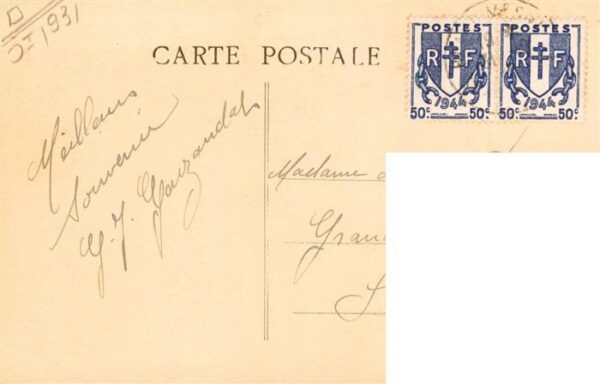 D
1931
CARTE POSTALE
POSTES
RF
1944
50c 50c
POSTES
RF
1944
50c 50c
Meilleurs
Souvenir
Madame
Gran